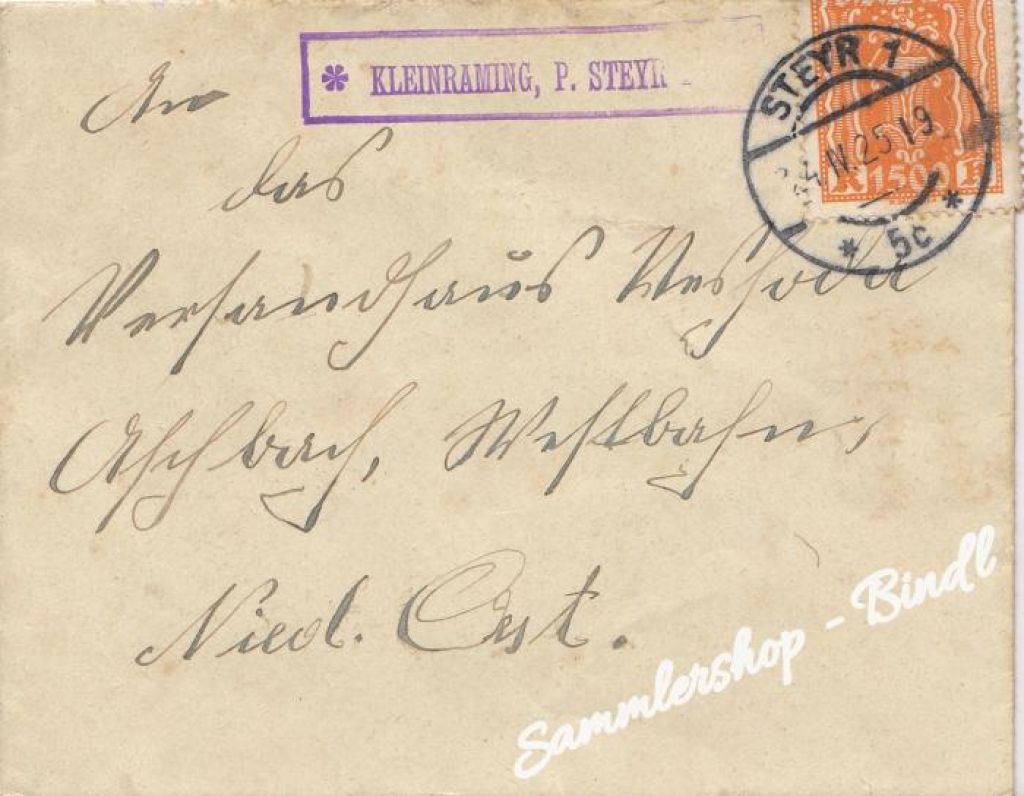 * KLEINRAMING, P. STEYR
STEYR 1
25 19
* 5c *
K 1500 K
An
das
Versandhaus
Aschbach, Westbahn,
Nied. Oest.
Sammlershop - Bindl